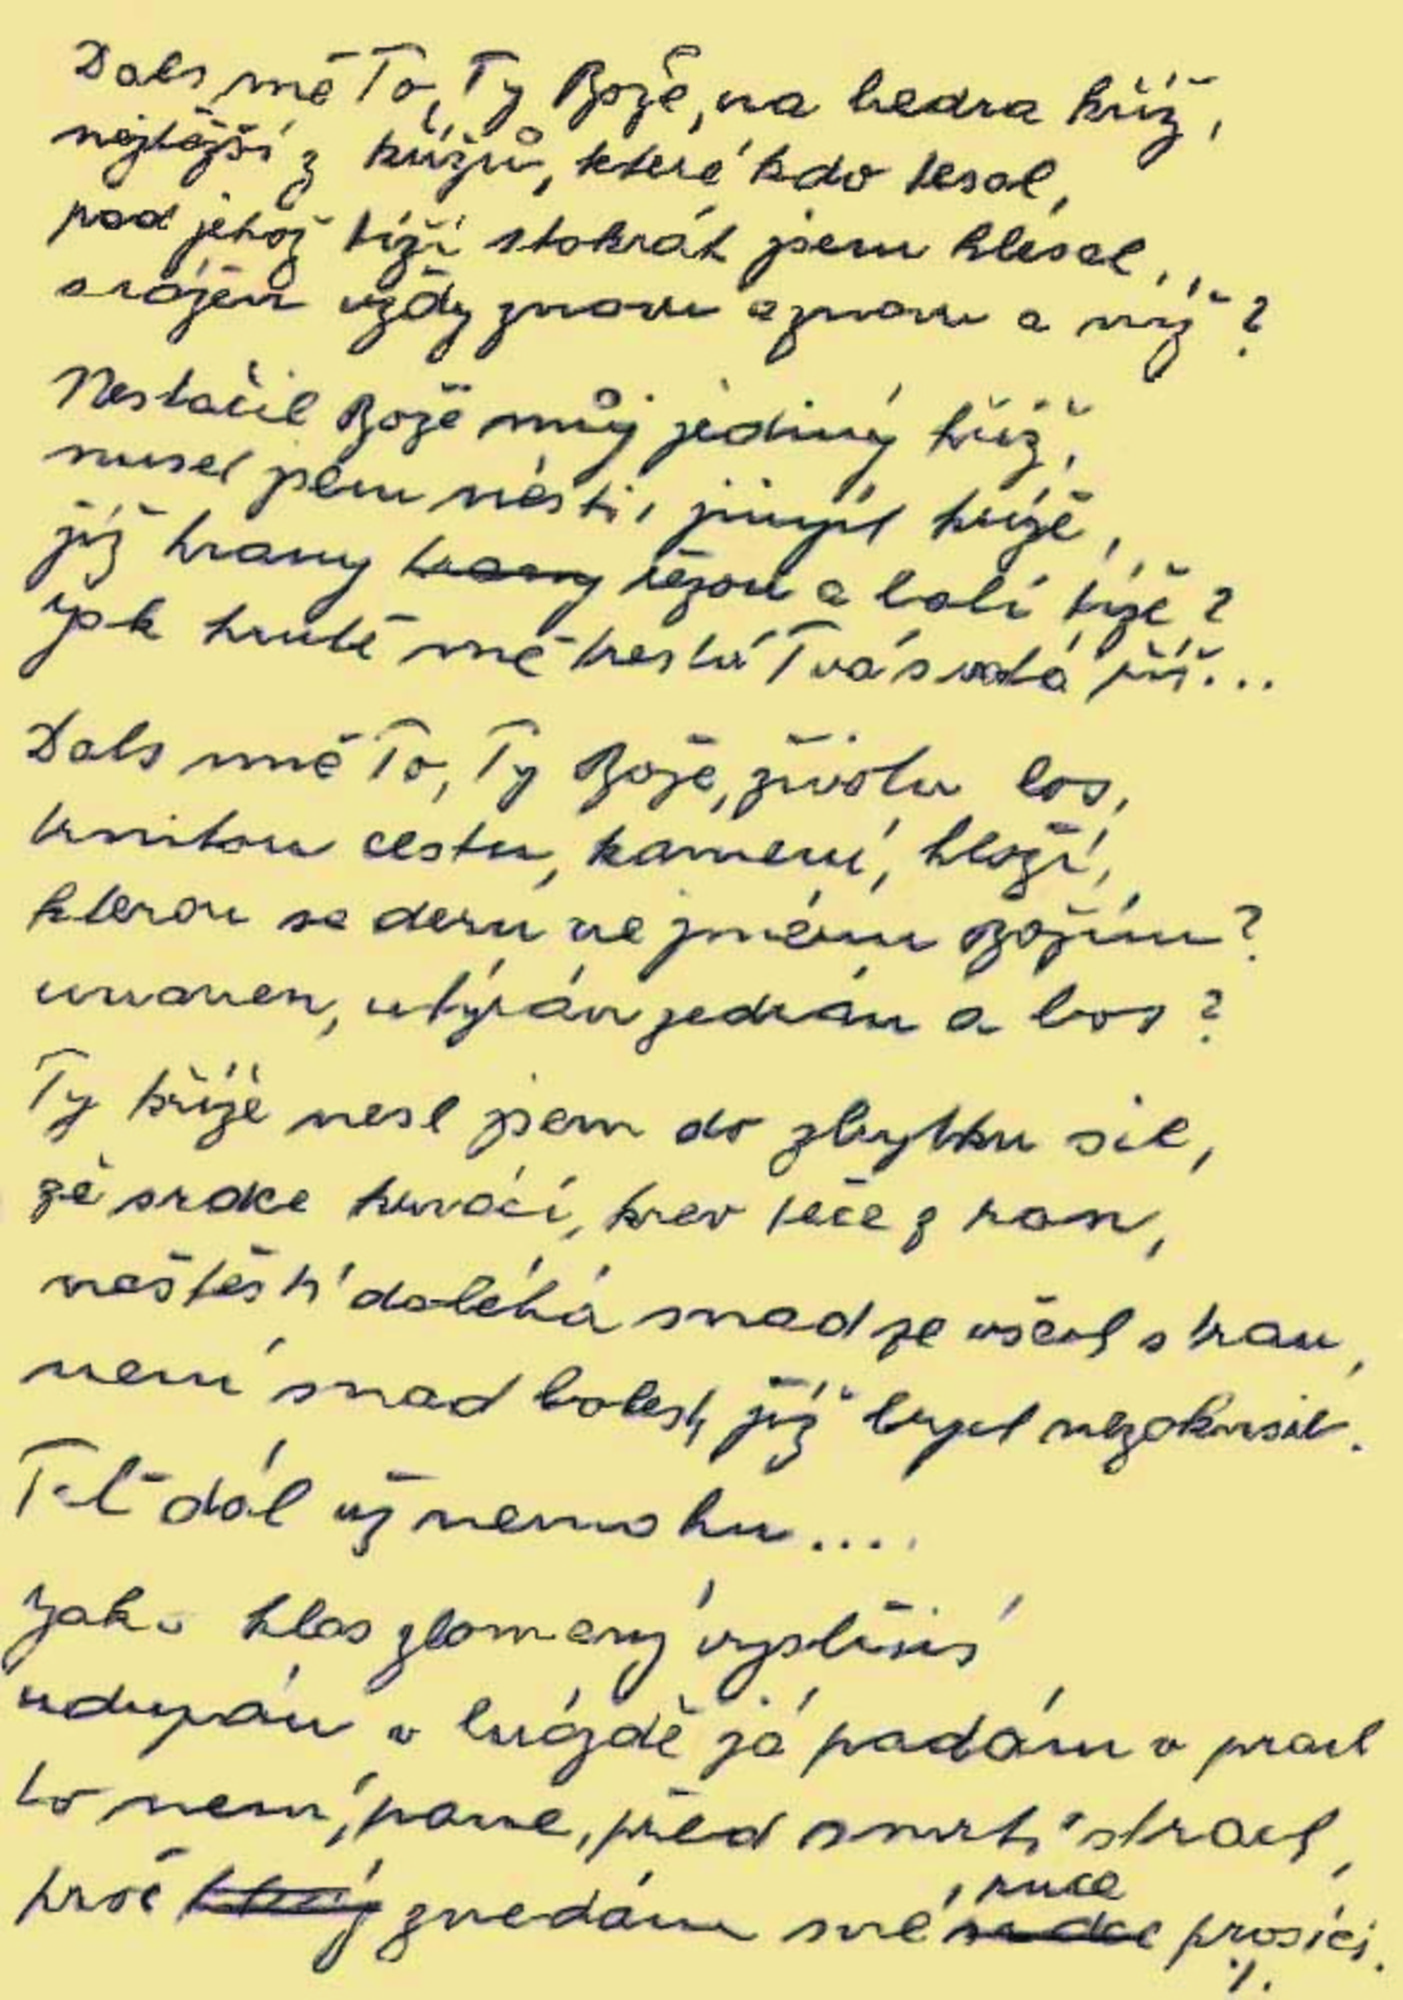 Dals mně To, Ty Bože, na bedra kříž,
nejtěžší z křížů, které kdo tesal,
pod jehož tíží stokrát jsem klesal,
srážen vždy znovu a znovu a níž?
Nestačil Bože můj jediný kříž,
musel jsem nésti, jiných kříže,
jíž hrany řezou a bolí tíže?
jak krutě mně trestá Tvá svatá říš...
Dals mně To, Ty Bože, životu los,
trnitou cestu, kamení, hloží,
kterou se deru ve jménu Božím?
unaven, utýrán jedrán a bos?
Ty kříže nesl jsem do zbytku sil,
že srdce krvácí, krev teče z ran,
neštěstí doléhá snad ze všech stran,
není snad bolesti, jíž bych nezakusil.
Teď dál už nemohu....
Jako hlas zlomený vyslyšíš
udupán v brázdě já padám v prach
to není, pane, před smrtí strach,
proč zvedám své ruce prosící.